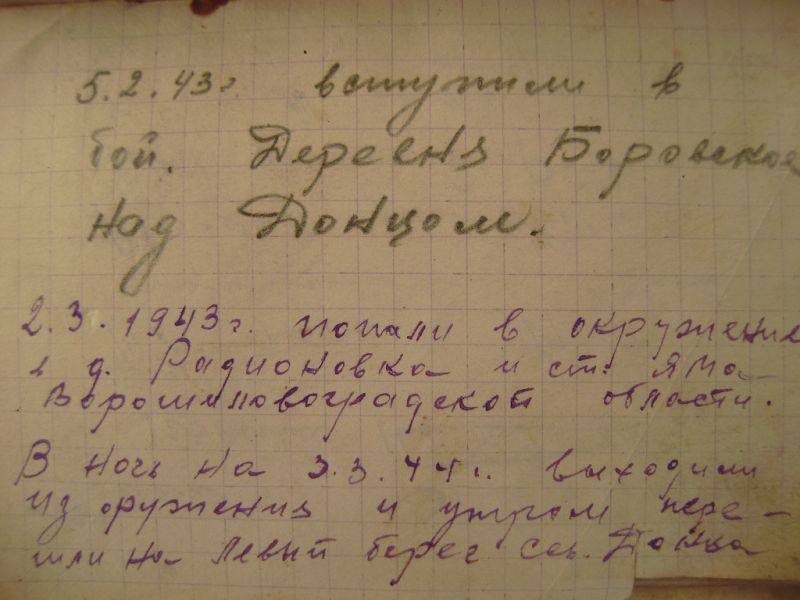 5.2.43г вступили в
бой. Деревня Боровское
над Донцом.
2.3.1943г. попали в окружение
в д. Радионовка и ст. Яма
Ворошиловоградской области.
В ночь на 3.3.44г. выходили
из оружения и утром пере-
шли на левый берег Сев. Донца